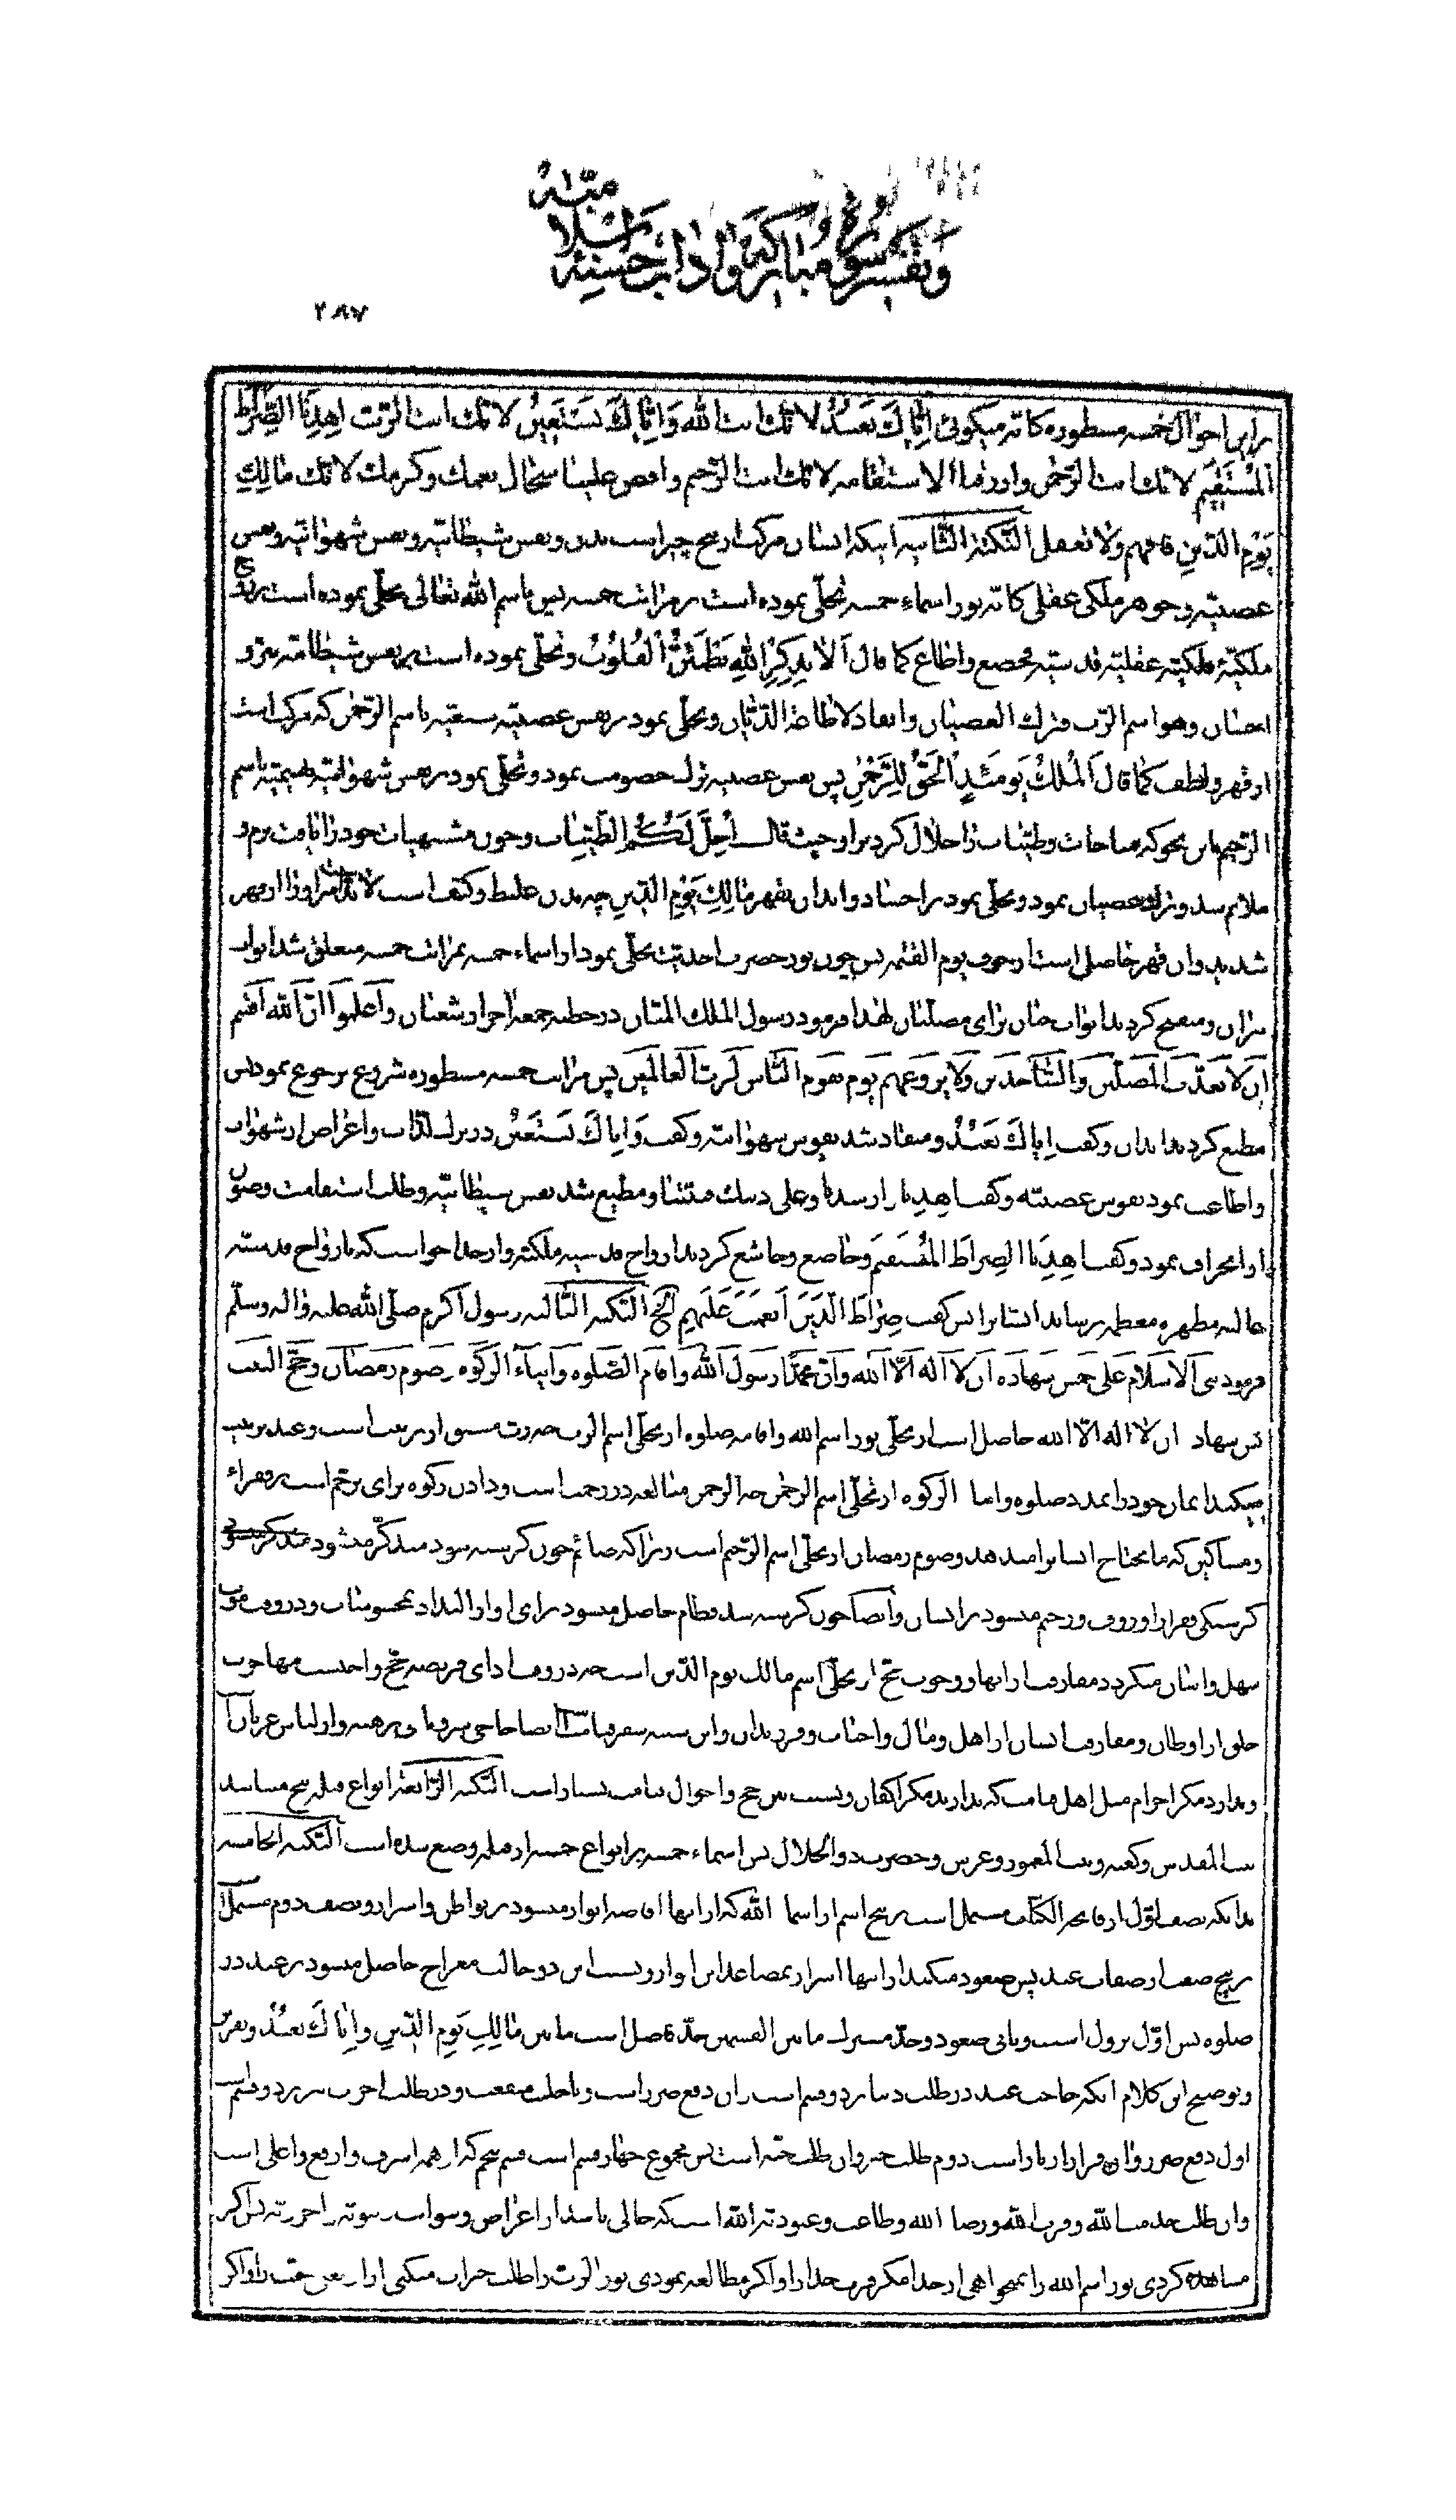 وتفسیر سوره مبارکه و اداب حسنه اسلامیّه
۲۸۷
براین احوال خمسه مسطوره کانّه میکوئی اِیّاكَ نَعبُدُ لانّك انت الله وَاِیّاكَ نَستَعینُ لانّك انت الرّب اِهدِنَا الصِّراطَ
المُستَقیمَ لانّك انت الرّحمن وارزقنا الاستقامه لانّك انت الرّحیم وافض علینا سجال نعمك وکرمك لانّك مالِكِ
یَومِ الدّینِ فافهم ولاتغفل النّکتة الثّانیه اینکه انسان مرکّب از پنج چیز است بدن ونفس شیطانیّه ونفس شهوانیّه ونفس
غضبیّه وجوهر ملکی عقلی کانّه نور اسماء خمسه تجلّی نموده است بمراتب خمسه پس باسم الله تعالی تجلّی نموده است بروح
ملکیّهٔ فلکیّه عقلیّه قدسیّه فخضع واطاع کما قال اَلا بِذِکرِ اللهِ تَطمَئِنُّ القُلوُبُ وتجلّی نموده است بر نفس شیطانیّه ببرّ و
احسان وهو اسم الرّب فترك العصیان وانقاد لاطاعة الدّیّان وتجلّی نمود بر نفس غضبیّه سبعیّه باسم الرّحمن که مرکب است
از قهر ولطف کما قال اَلمُلكُ یَومَئِذٍ الحَقُّ لِلرَّحمٰنِ پس نفس غضبیه ترك خصومت نمود وتجلّی نمود بر نفس شهوانیّه بهیمیّه باسم
الرّحیم باین نحو که مباحات وطیّبات را حلال کرد براو حیث قال اُحِلَّ لَکُمُ الطَّیِّباتُ وچون مشتهیات خود را یافت نرم و
ملایم شد وترك عصیان نمود وتجلّی نمود بر اجساد وابدان بقهر مالِكِ یَومِ الدّینِ چه بدن غلیظ وکثیف است لابدّ است مر او را از قهر
شدید وان قهر حاصل است از خوف یوم القیمه پس چون نور حضرت احدیّت تجلّی نمود از اسماء خمسه بمراتب خمسه مغلق شد ابواب
نیران ومفتّح گردید ابواب جنان برای مصلّیان لهذا فرمود رسول الملك المنّان در خطبه جمعه اخر از شعبان واعلموا انّ الله اقسم
ان لا یعذّب المصلّین والسّاجدین ولا یروعهم یوم یقوم النّاس لربّ العالمین پس مراتب خمسه مسطوره شروع برجوع نمود پس
مطیع کردید ابدان وکفت اِیّاكَ نَعبُدُ ومنقاد شد نفوس شهوانیّه وکفت وَاِیّاكَ نَستَعینُ در ترك لذّات واعراض از شهوات
واطاعت نمود نفوس غضبیّه وکفت اِهدِنا وارشدنا وعلی دینك ثبّتنا ومطیع شد نفس شیطانیّه وطلب استقامت وصون
او از انحراف نمود وکفت اِهدِنَا الصِّراطَ المُستَقیمَ وخاضع وخاشع کردید ارواح قدسیه ملکیّه واز خدا خواست که بارواح قدسیّه
عالیه مطهره معظمه برساند ایشانرا پس کفت صِراطَ الَّذینَ اَنعَمتَ عَلَیهِم الخ النّکتة الثّالثه رسول اکرم صلّی الله علیه واله وسلّم
فرمود بنی الاسلام علی خمس شهادة ان لا اله الّا الله وانّ محمّداً رسول الله واقام الصّلوة وایتاء الزّکوة وصوم رمضان وحجّ البیت
پس شهادة ان لا اله الّا الله حاصل است از تجلّی نور اسم الله واقامه صلوة از تجلّی اسم الرّب چه رب مشتق از تربیت است وعبد تربیت
میکند ایمان خود را بمدد صلوة وایتاء الزکوة از تجلّی اسم الرحمن چه الرحمن مبالغه در رحمت است ودادن زکوة برای ترحّم است بر فقراء
ومساکین که مایحتاج ایشانرا میدهد وصوم رمضان از تجلّی اسم الرّحیم است زیرا که صائم چون کرسنه شود متذکّر میشود
کرسنکی فقرا را ورؤف ورحیم میشود برایشان وایضاً چون کرسنه شد فطام حاصل میشود برای او از التذاد بمحسوسات ودر وقت موت
سهل واسان میکردد مفارقت از انها ووجوب حجّ از تجلّی اسم مالك یوم الدّین است چه در وقت ادای فریضه حجّ واجبست مهاجرت
حاج از اوطان ومفارقت ایشان از اهل ومال واحباب وفرزندان واین شبیه سفر قیامتست ایضا حاجی سر وپا برهنه واز لباس عریان است
وندارد مگر احرام مثل اهل قیامت که ندارند مگر اکفان ونسبت بین حج واحوال قیامت بسیار است النّکتة الرّابعة انواع قبله پنج میباشد
بیت المقدس وکعبه وبیت المعمور وعرش وحضرت ذوالجلال پس اسماء خمسه برانواع خمسه از قبله وضع شده است النّکتة الخامسه
بدانکه نصف اوّل از فاتحة الکتاب مشتمل است بر پنج اسم از اسماء الله که از انها افاضه انوار میشود بر بواطن واسرار ونصف دوم مشتمل است
بر پنج صفت از صفات عبد پس صعود میکند از انها اسرار بمصاعد این انوار وبسبب این دو حالت معراج حاصل میشود بر عبد در
صلوة پس اوّل نزول است وثانی صعود وحدّ مشترك مابین القسمین حدّ فاصل است مابین مالِكِ یَومِ الدّینِ وَاِیّاكَ نَعبُدُ وتقریر
وتوضیح این کلام انکه حاجت عبد در طلب دنیا بر دو قسم است زان دفع ضرر است ویا جلب منفعت ودر طلب اخرت نیز بر دو قسم است
اول دفع ضرر وان فرار از نار است دوم طلب خیر وان طلب جنّه است پس مجموع چهار قسم است قسم پنجم که از همه اشرف وارفع واعلی است
وان طلب خدمت الله وقرب الله ورضاء الله وطاعت وعبودیّة الله است که خالی باشد از اعراض
مشاهده کردی نور اسم الله را نمیخواهی از خدا مگر قرب خدا را واکر مطالعه نمودی نور الرّب را طلب خیرات میکنی از او